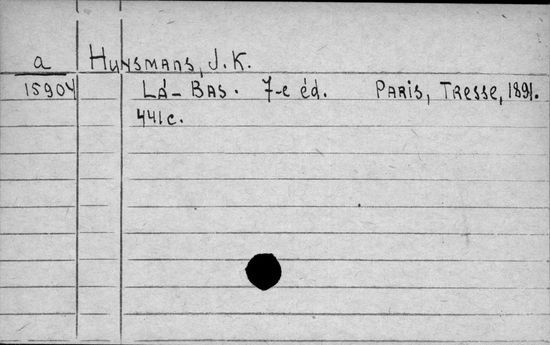 a Huysmans, J.K.
15904 Lá-Bas. 7-e éd. Paris, Tresse, 1891.
441c.